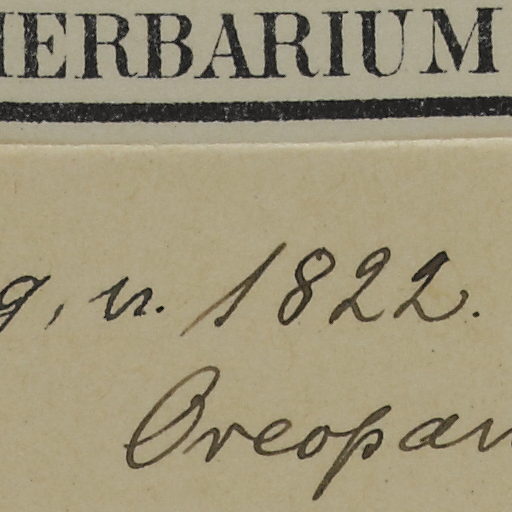 HERBARIUM
g, n. 1822.
Oreopan